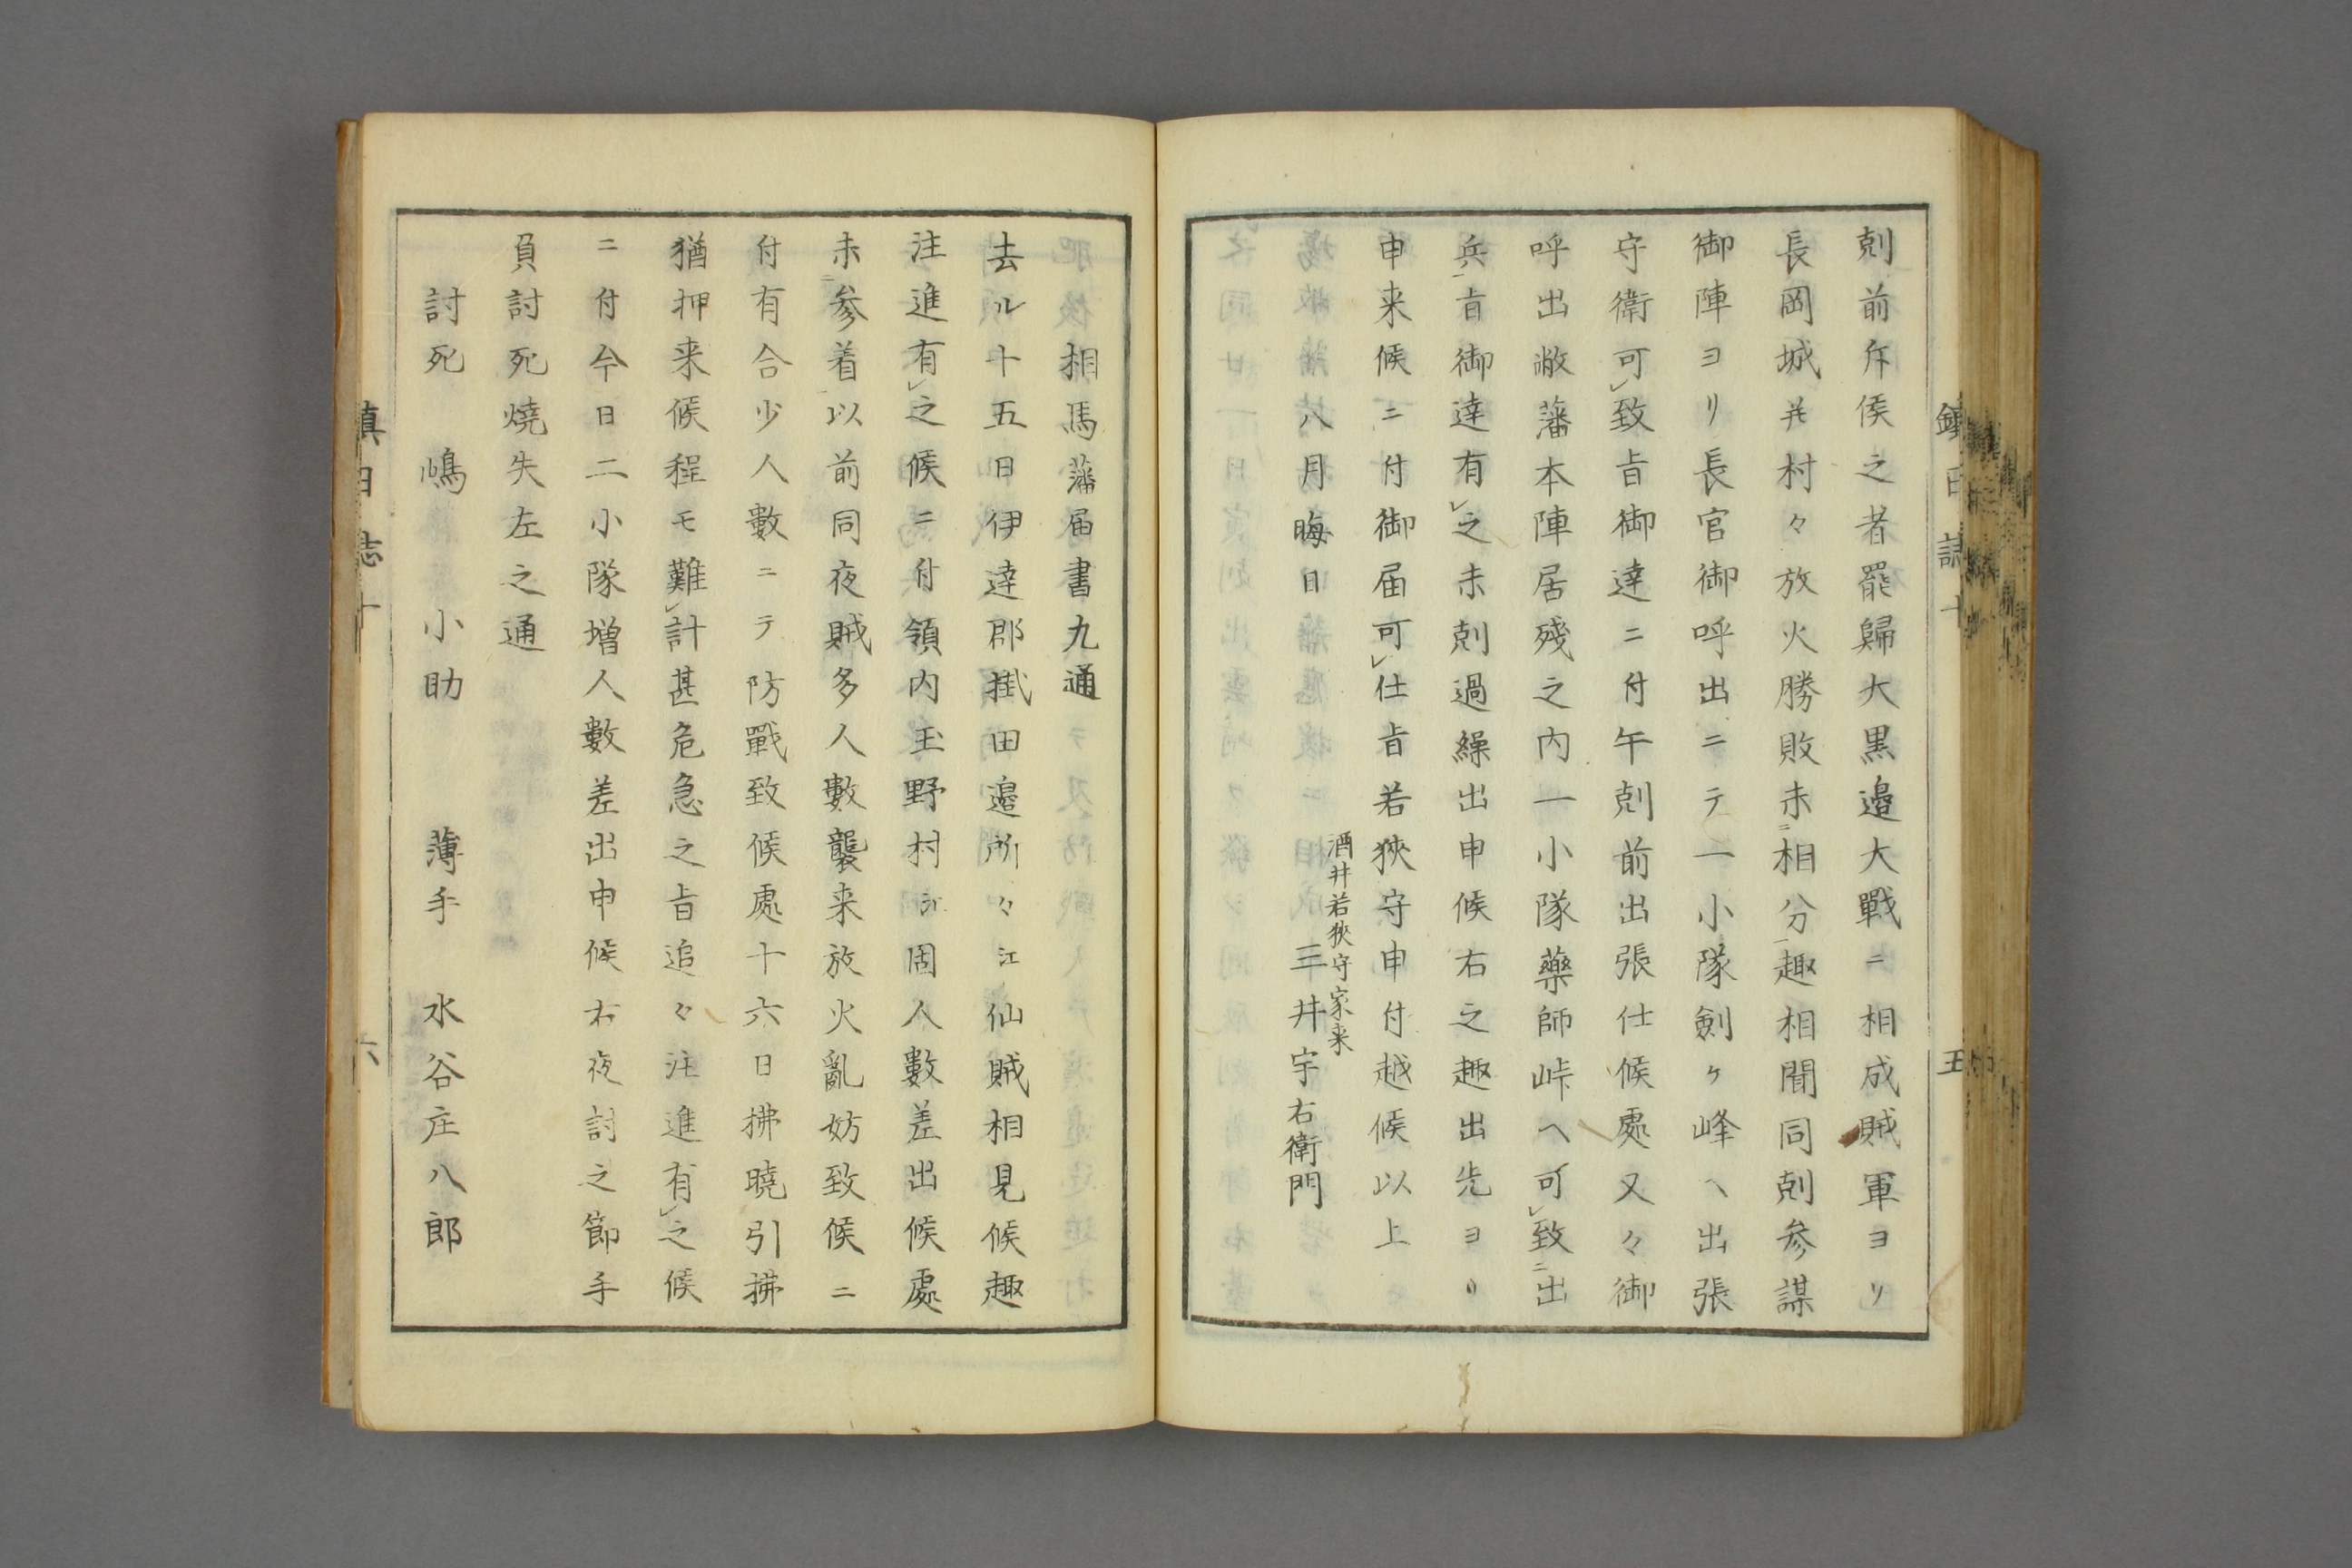 剋前斥候之者罷歸大黒邉大戰ニ相成賊軍ヨリ
長岡城并村々放火勝敗未ニ相分一趣相聞同剋参謀
御陣ヨリ長官御呼出ニテ一小隊劍ヶ峰ヘ出張
守衛可レ致旨御達ニ付午剋前出張仕候處又々御
呼出敝藩本陣居殘之内一小隊藥師峠ヘ可レ致ニ出
兵一旨御達有レ之未剋過繰出申候右之趣出先ヨリ
申来候ニ付御届可レ仕旨若狹守申付越候以上
酒井若狹守家来
八月晦日 三井宇右衛門
相馬藩届書九通
去ル十五日伊達郡掛田邉所々江仙賊相見候趣
注進有レ之候ニ付領内玉野村江固人數差出候處
未ニ参着一以前同夜賊多人數襲来放火亂妨致候ニ
付有合少人數ニテ防戰致候處十六日拂曉引拂
猶押来候程モ難レ計甚危急之旨追々注進有レ之候
ニ付今日二小隊増人數差出申候右夜討之節手
負討死燒失左之通
討死 嶋 小助 薄手 水谷庄八郎
鎮日誌十 五
鎮日誌十 六